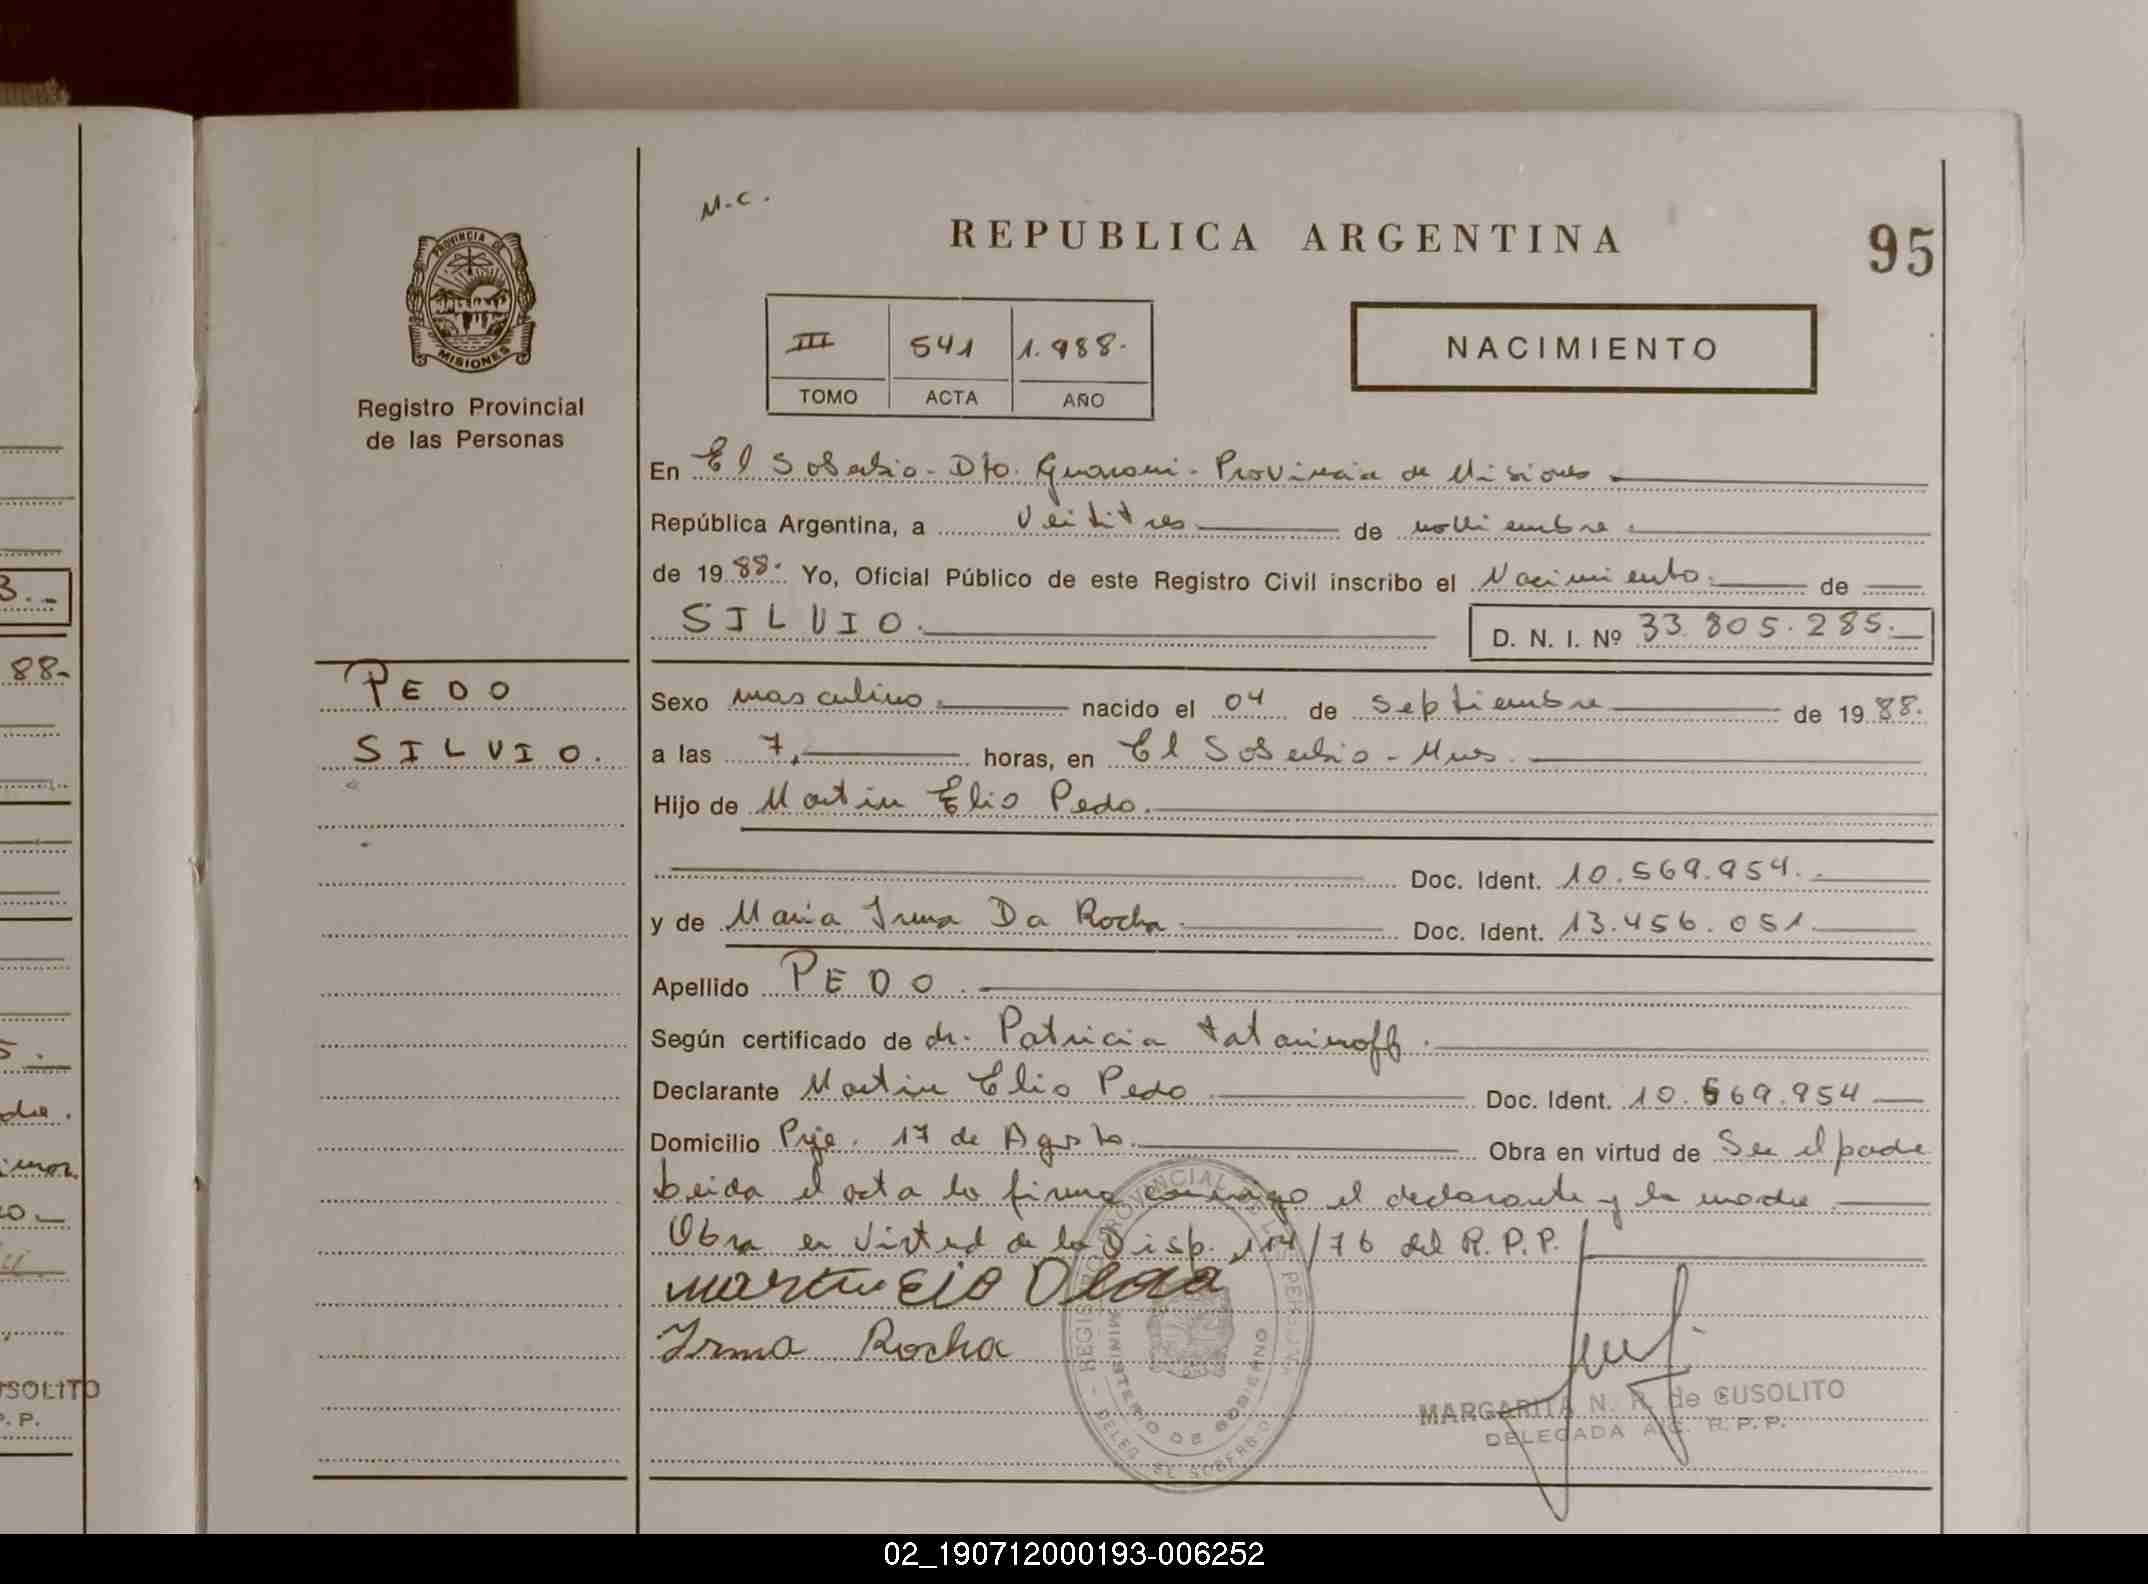 M.C.
REPUBLICA ARGENTINA
95
PROVINCIA DE
MISIONES
Registro Provincial
de las Personas
III 541 1.988.
TOMO ACTA AÑO
NACIMIENTO
En El Soberbio - Dto. Guarani - Provincia de Misiones
República Argentina, a Veititres de noviembre
de 19 88. Yo, Oficial Público de este Registro Civil inscribo el Nacimiento. de
SILVIO.
D. N. I. Nº 33.805.285.
PEDO
SILVIO.
Sexo masculino. nacido el 04 de septiembre de 19 88.
a las 7, horas, en El Soberbio - Mnes.
Hijo de Martin Elio Pedo.
Doc. Ident. 10.569.954.
y de Maria Irma Da Rocha Doc. Ident. 13.456.051.
Apellido PEDO.
Según certificado de dr. Patricia
Declarante Martin Elio Pedo Doc. Ident. 10.569.954
Domicilio Pje. 17 de Agosto. Obra en virtud de Ser el padre
Leida el acta la firma conmigo el declarante y la madre.
Obra en Virtud de la Disp. 104/76 del R.P.P.
Irma Rocha
REGISTRO PROVINCIAL DE LAS PERSONAS
MINISTERIO DE GOBIERNO
DELEG. EL SOBERBIO
MARGARITA N. R. de CUSOLITO
DELEGADA A.C. R.P.P.
3.-
88-
5.
USOLITO
P. P.
02_190712000193-006252